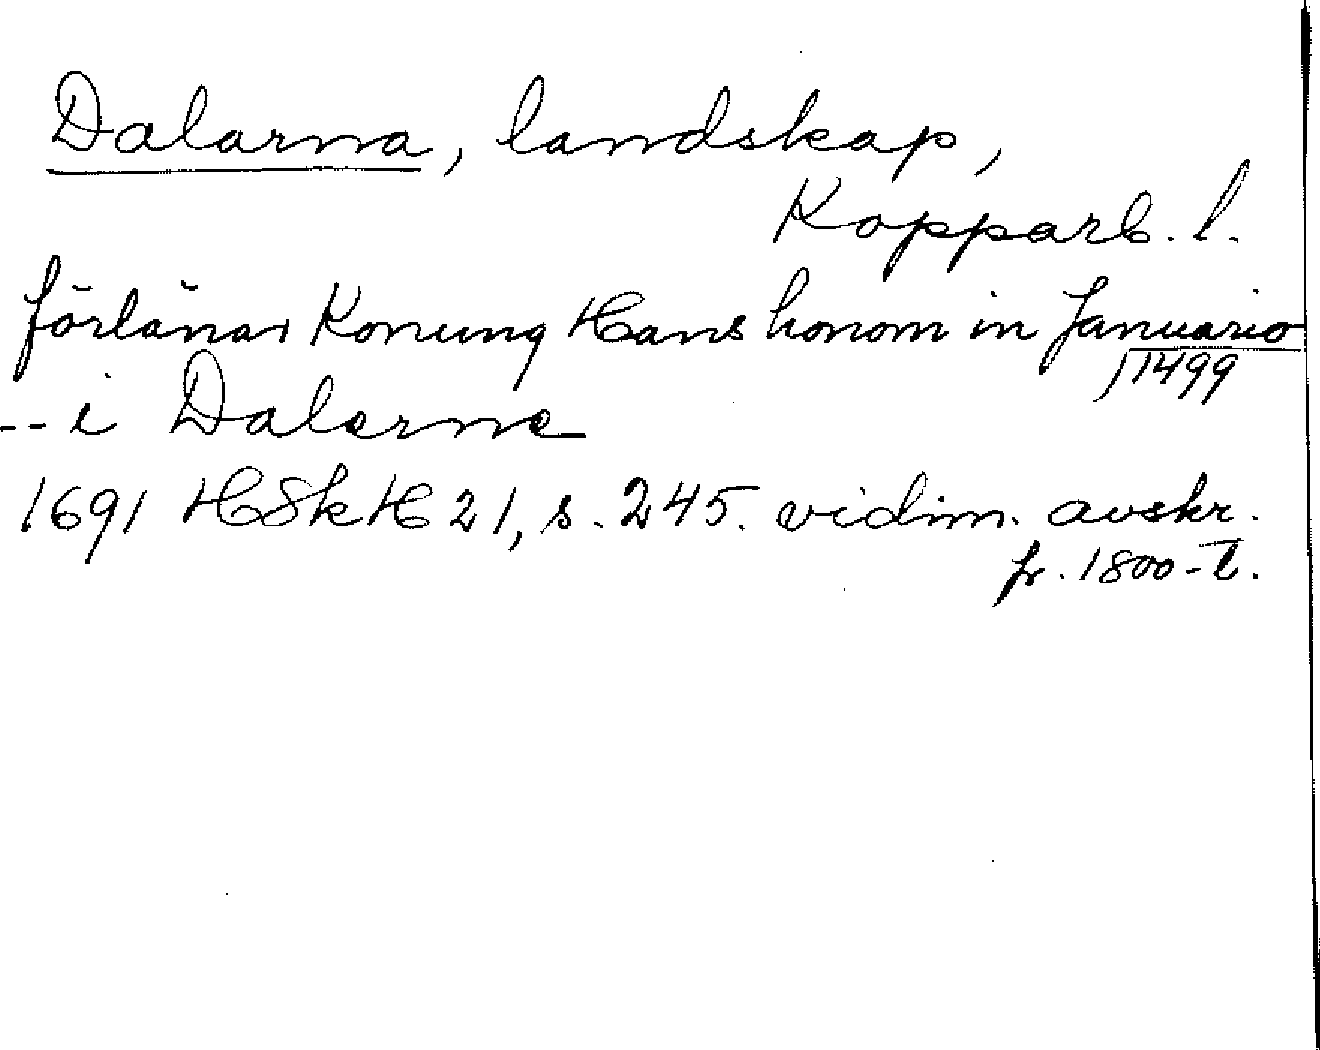 Dalarna, landskap,
Kopparb. l.
förlänar Konung Hans honom in Januario
1499
-- i Dalarne
1691 HSkH 21, s. 245. vidim. avskr.
fr. 1800-t.